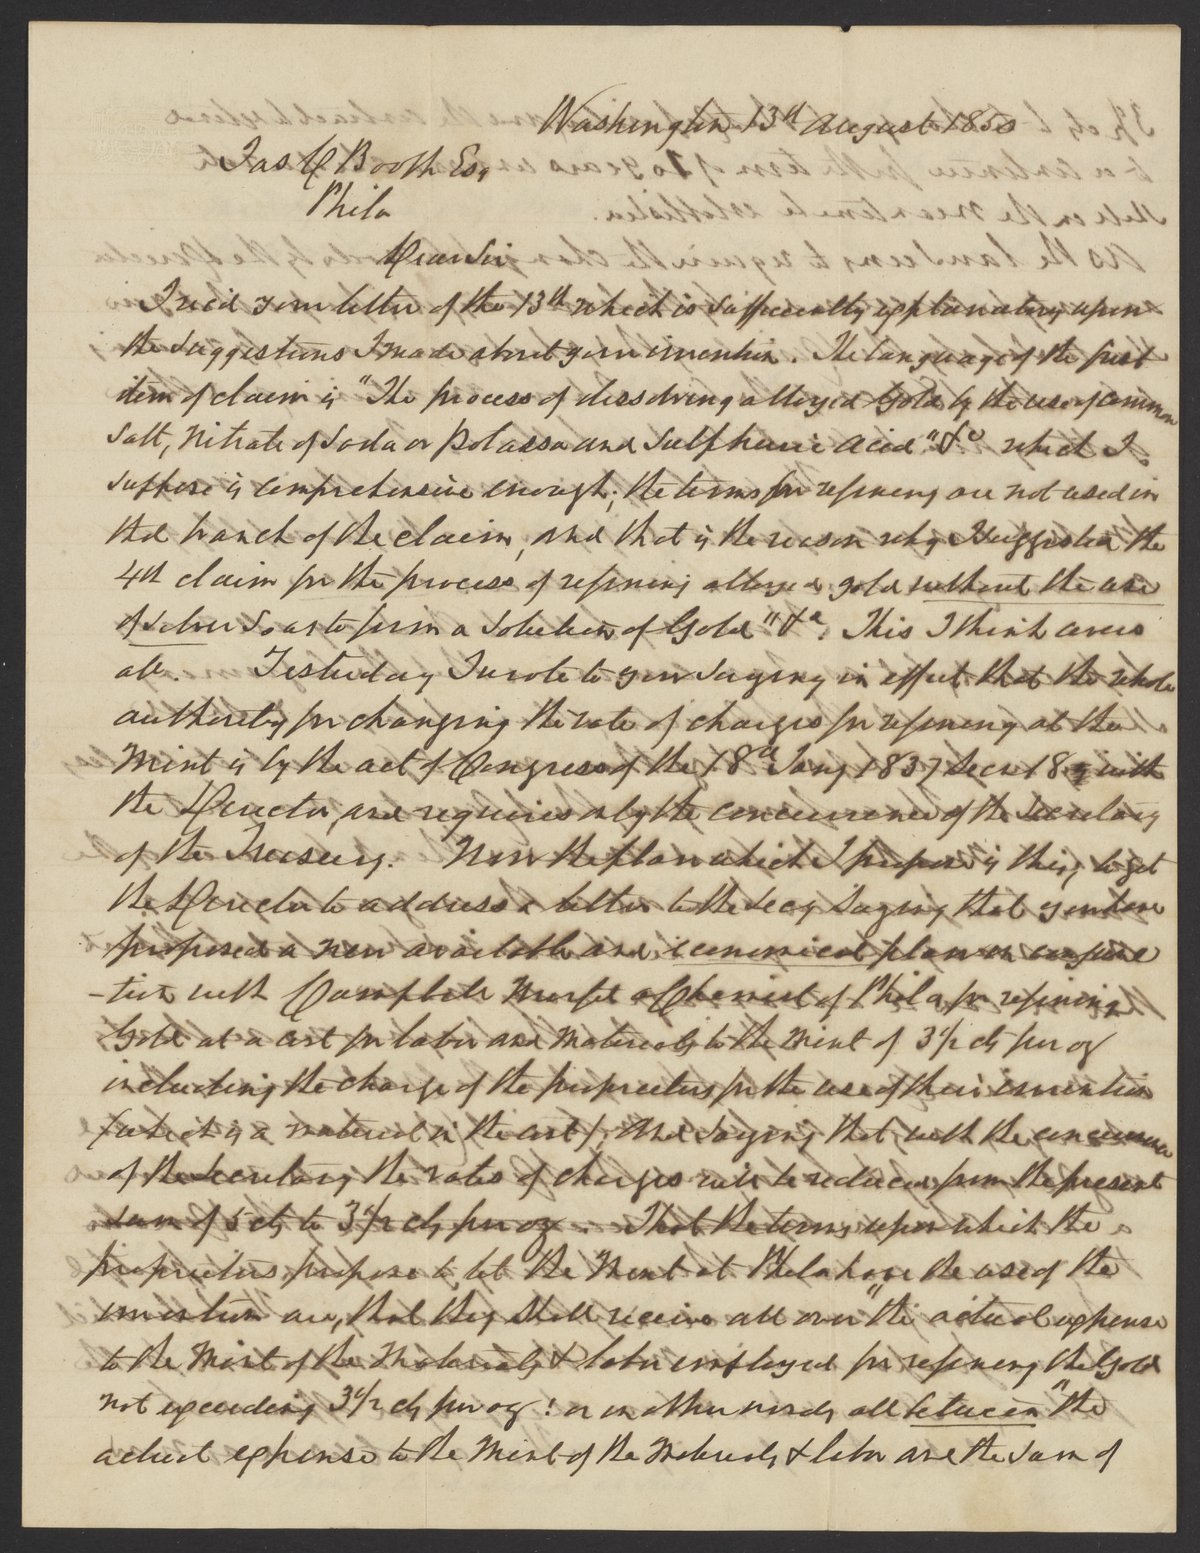 Washington 13th August 1850
Jas C Booth Esq
Phila
Dear Sir
I recd your letter of the 13th which is sufficiently explanatory upon
the suggestions I made about your invention. The language of the first
item of claim is "The process of dissolving alloyed Gold by the use of common
Salt, Nitrate of Soda or Potassa and Sulphuric acid "&c which I
suppose is comprehensive enough; the terms for refining are not used in
that branch of the claim, and that is the reason why I suggested the
4th claim for the process of refining alloyed gold without the use
of silver so as to form a solution of Gold "&c. This I think covers
all. Yesterday I wrote to you saying in effect that the whole
authority for changing the rate of charges for refining at the
Mint is by the act of Congress of the 18th Jany 1837 Sec 18 is with
the Director, and requires only the concurrence of the Secretary
of the Treasury. Now the plan which I propose is this, to get
the Director to address a letter to the Secy saying that you have
proposed a new available and economical plan in conjunc
-tion with Campbell Morfit a Chemist of Phila for refining
Gold at a cost for labor and materials to the Mint of 3 1/2 cts per oz
including the charge of the proprietors for the use of their invention
(which is a material in the cost), And saying that with the concurrence
of the Secretary the rates of charges will be reduced from the present
sum of 5 cts to 3 1/2 cts per oz. That the terms upon which the
proprietors propose to let the Mint at Phila have the use of the
invention are, that they shall receive all over "the actual expense
to the Mint of the Materials & labor employed for refining the Gold
not exceeding 3 1/2 cts per oz! or in other words all between "the
actual expense to the Mint of the Materials & labor and the sum of